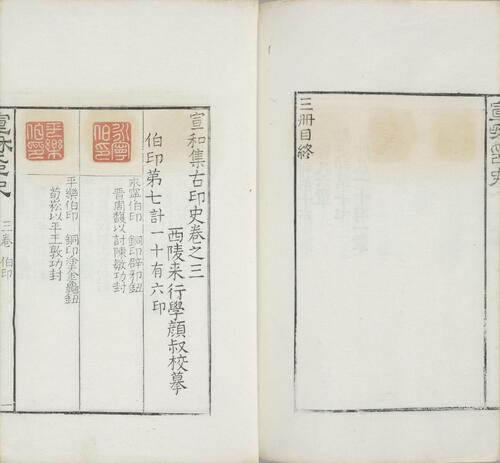 三冊目終
宣和集古印史卷之三
西陵来行學顔叔校摹
伯印第七計一十有六印
永寧伯印
永寧伯印 銅印辟邪鈕
晋周馥以討陳敏功封
平樂伯印
平樂伯印 銅印塗金龜鈕
荀崧以平王敦功封
宣和印史
三卷 伯印
一